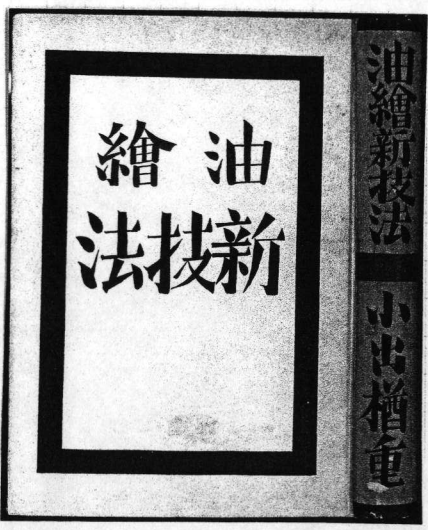 油繪
新技法
油繪新技法
小出楢重